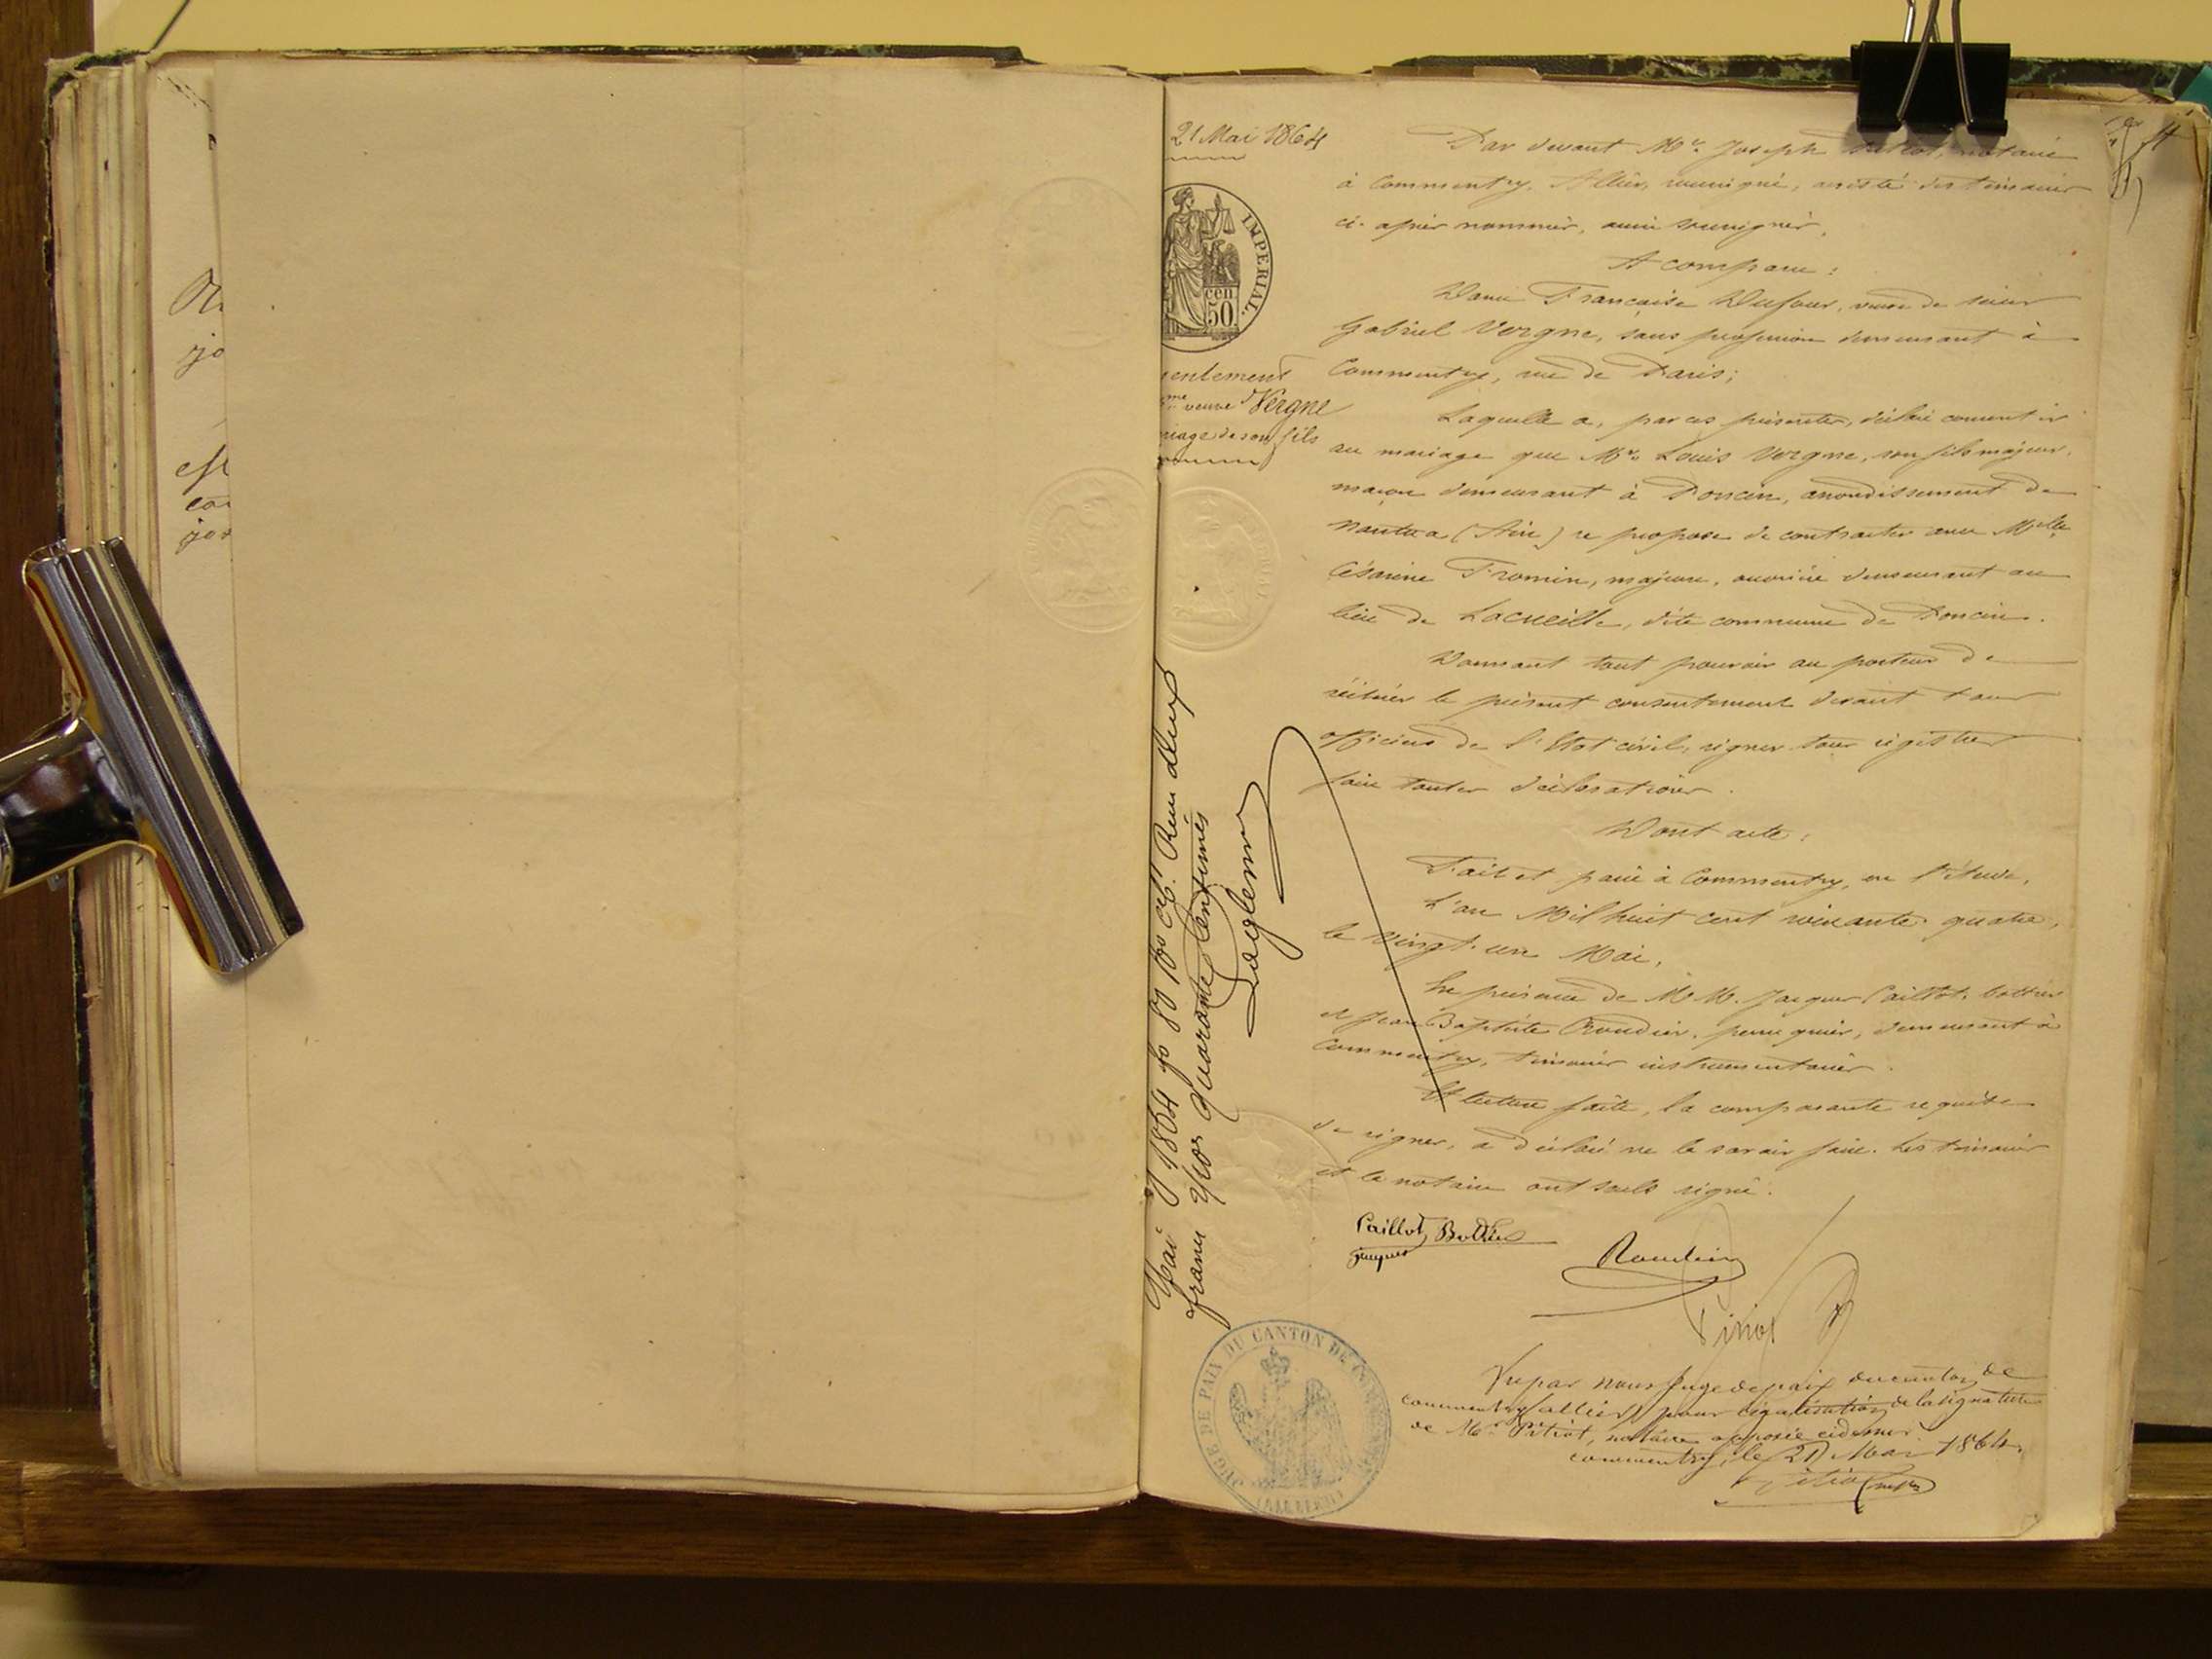 21 Mai 1864
IMPERIAL.
cen
50
sentement
me veuve Vergne
riage de son fils
Par devant Me. Joseph Pitiot, notaire
à Commentry, Allier, soussigné, assisté des témoins
ci-après nommés, aussi soussignés,
A comparu :
Dame Française Dufour, veuve de sieur
Gabriel Vergne, sans profession demeurant à
Commentry, rue de Paris;
Laquelle a, par ces présentes, déclaré consentir
au mariage que Mr. Louis Vergne, son fils majeur,
maçon demeurant à Poncin, arrondissement de
Nantua (Ain) se propose de contracter avec Melle
Césarine Fromin, majeure, ouvrière demeurant au
lieu de Lacueille, dite commune de Poncin.
Donnant tout pouvoir au porteur de
réitérer le présent consentement devant tous
officiers de l'Etat civil, signer tous registres
faire toutes déclarations.
Dont acte :
Fait et passé à Commentry, en l'étude,
L'an Mil huit cent soixante quatre,
le vingt-un Mai,
En présence de MM. Jacques Caillot, bottier
et Jean Baptiste Roudier, perruquier, demeurant à
Commentry, témoins instrumentaires.
Et lecture faite, la comparante requise
de signer, a déclaré ne le savoir faire. Les témoins
et le notaire ont seuls signé.
Caillot Bottier
Jacques
Roudier
Pitiot
Vu par nous Juge de paix du canton de
commentry (allier) pour légalisation de la signature
de Me. Pitiot, notaire apposée ci dessus.
commentry, le 21 Mai 1864.
JUGE DE PAIX DU CANTON DE COMMENTRY
(ALLIER)
Mai 1864 fo 80 Ro c6. Reçu deux
francs quarante centimes
est